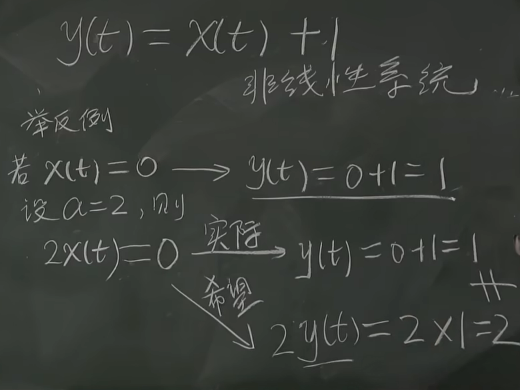 y(t) = x(t) + 1
非线性系统...
举反例
若 x(t) = 0 → y(t) = 0+1 = 1
设 a=2, 则
2x(t) = 0 实际→ y(t) = 0+1 = 1
希望
2y(t) = 2×1 = 2